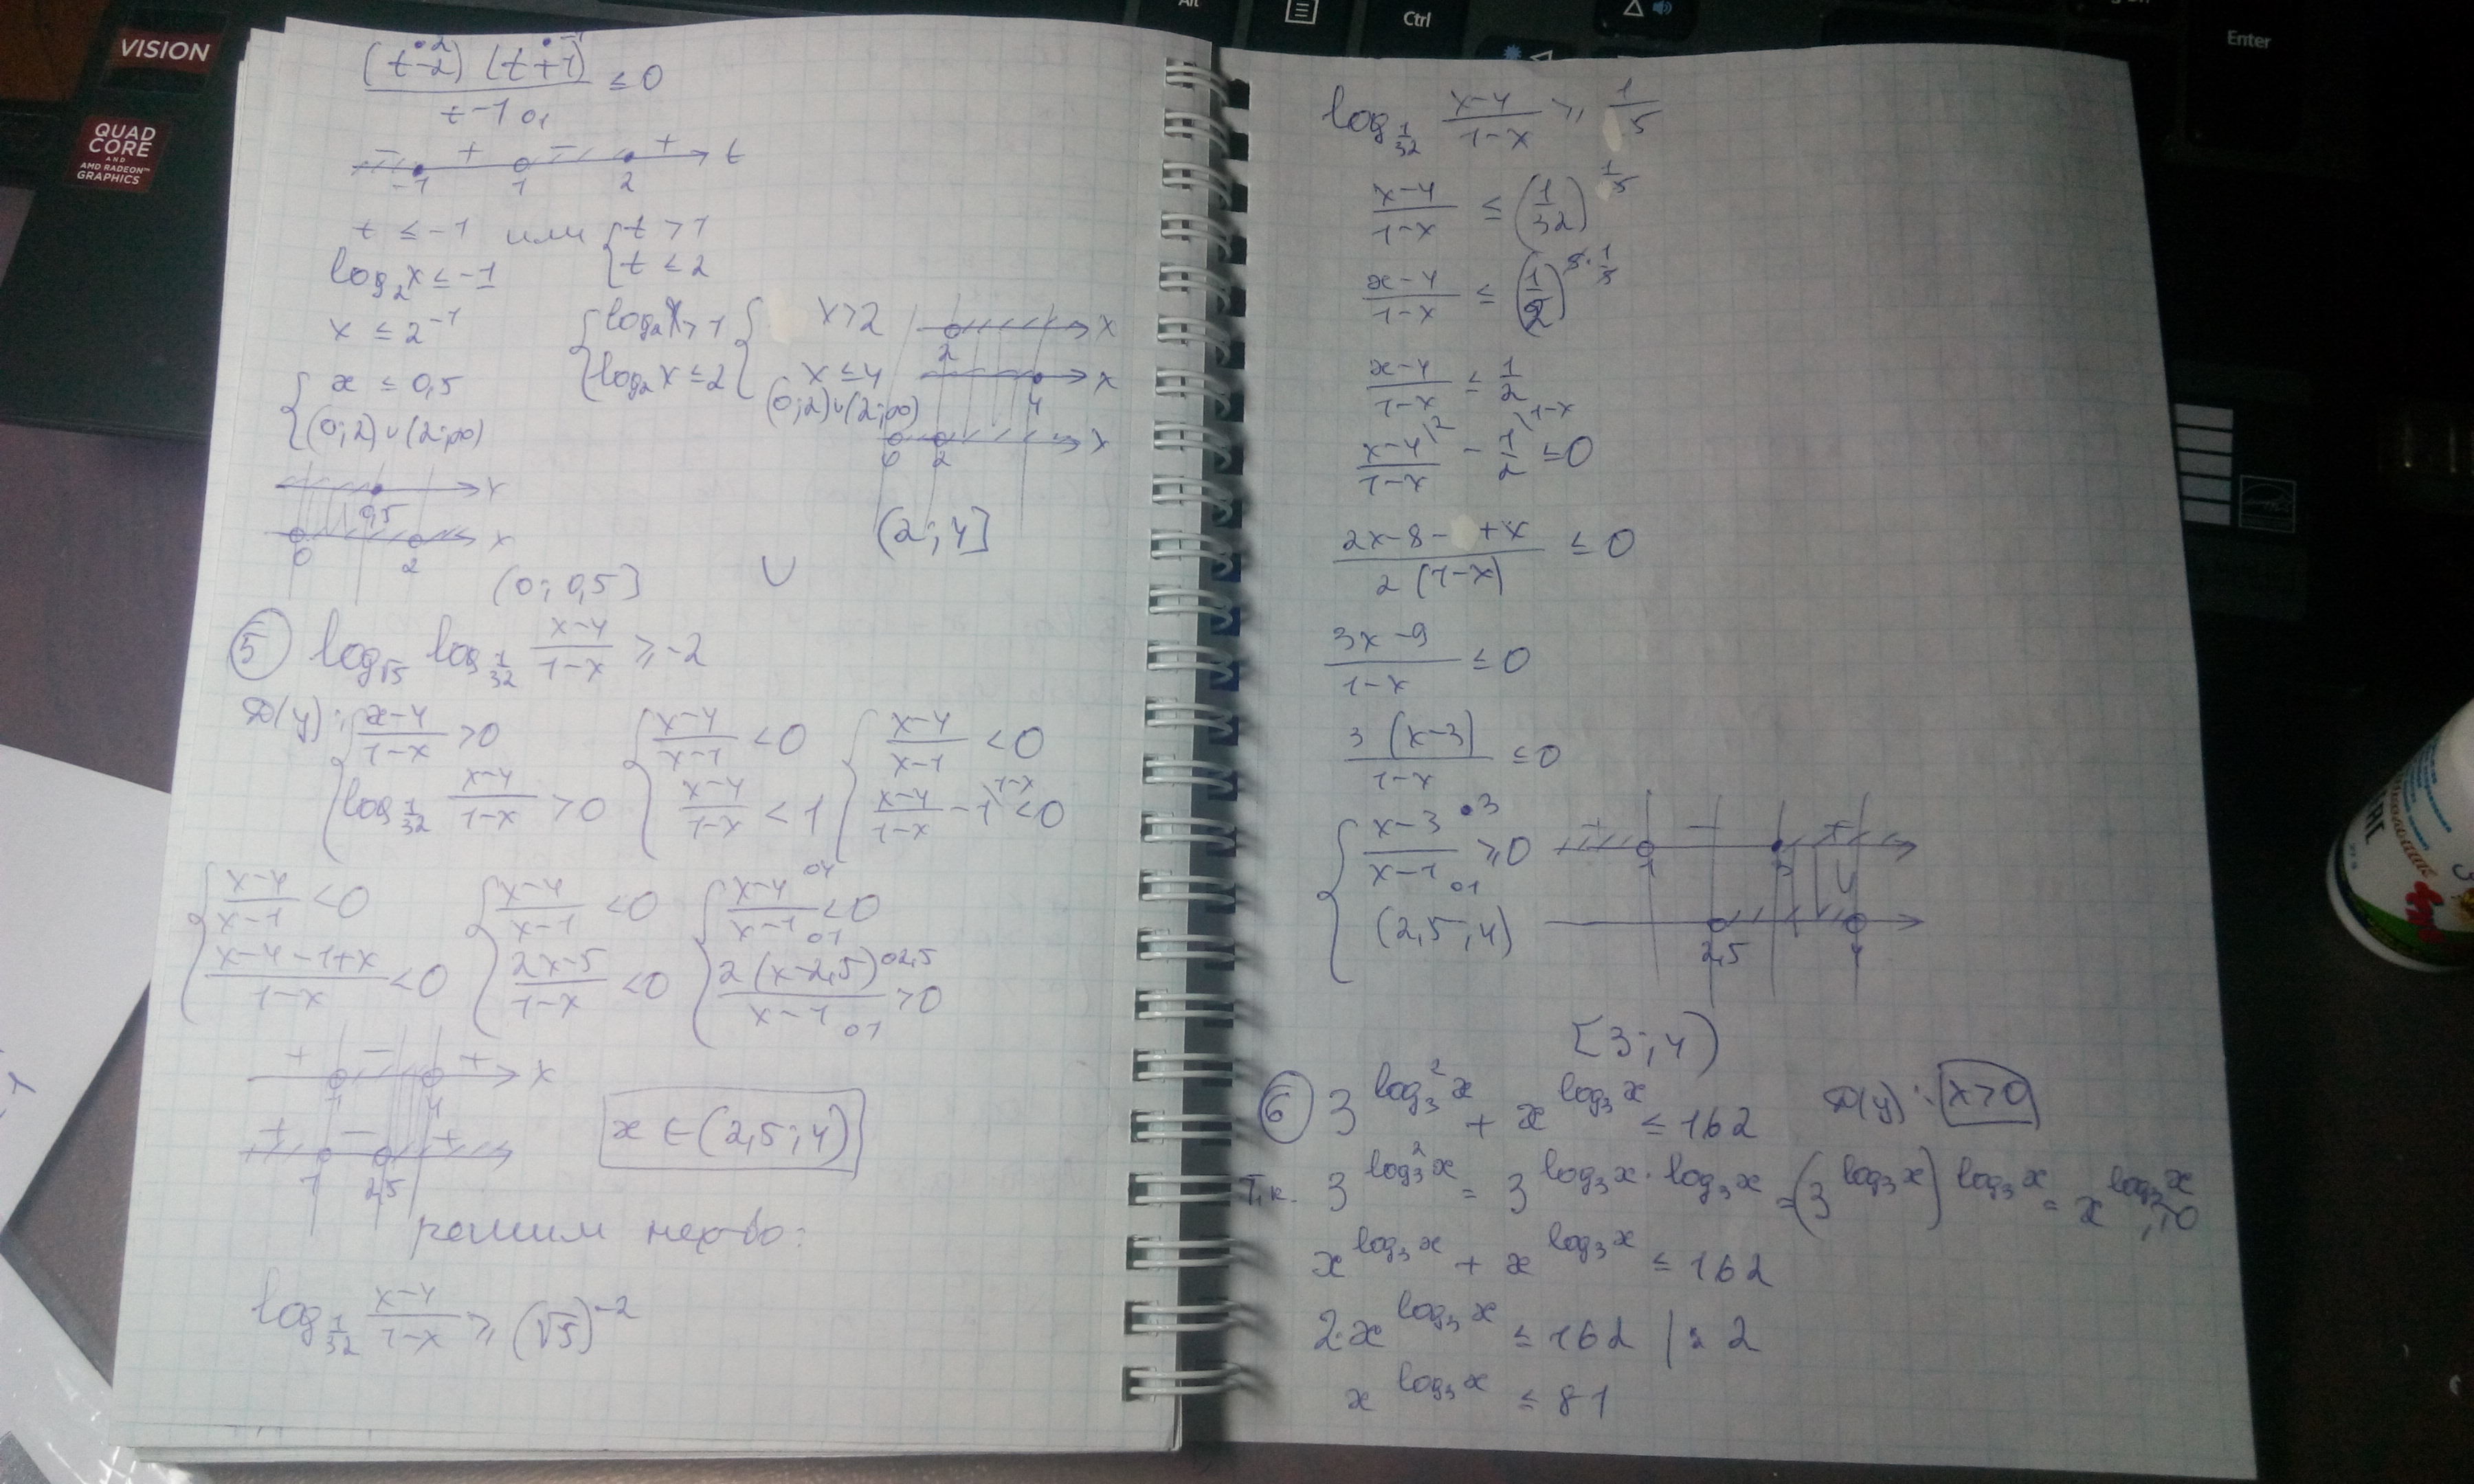 VISION
QUAD
CORE
AND
AMD RADEON™
GRAPHICS
Alt
Ctrl
Enter
(t-2) (t+1) / t-1 ≤ 0
•2 •-1
01
- + - + t
-1 1 2
t ≤ -1 или { t > 1
t ≤ 2
log₂x ≤ -1
x ≤ 2⁻¹
{ log₂x > 1
log₂x ≤ 2
{ x > 2
x ≤ 4
(0;2)∪(2;∞)
2 x
4 x
0 2 x
{ x ≤ 0,5
(0;2)∪(2;∞)
0,5 x
0 2 x
(0; 0,5] ∪ (2; 4]
⑤ log_√5 log_1/32 (x-4)/(1-x) ≥ -2
D(y): { (x-4)/(1-x) > 0
log_1/32 (x-4)/(1-x) > 0
{ (x-4)/(x-1) < 0
(x-4)/(1-x) < 1
{ (x-4)/(x-1) < 0
(x-4)/(1-x) - 1\1-x < 0
{ (x-4)/(x-1) < 0
(x-4-1+x)/(1-x) < 0
{ (x-4)/(x-1) < 0
(2x-5)/(1-x) < 0
{ (x-4)/(x-1) < 0
04 01
2(x-2,5)/(x-1) > 0
02,5 01
+ - + x
1 4
+ - +
1 2,5
x ∈ (2,5; 4)
решим нер-во:
log_1/32 (x-4)/(1-x) ≥ (√5)⁻²
log_1/32 (x-4)/(1-x) ≥ 1/5
(x-4)/(1-x) ≤ (1/32)^1/5
(x-4)/(1-x) ≤ (1/2)^5·1/5
(x-4)/(1-x) ≤ 1/2
(x-4)/(1-x)\2 - 1/2\1-x ≤ 0
(2x-8- +x)/(2(1-x)) ≤ 0
(3x-9)/(1-x) ≤ 0
3(x-3)/(1-x) ≤ 0
{ (x-3)/(x-1) ≥ 0
•3 01
(2,5; 4)
+ - +
1 3
2,5 4
[3; 4)
⑥ 3^log₃²x + x^log₃x ≤ 162 D(y): x>0
Т.к. 3^log₃²x = 3^log₃x·log₃x = (3^log₃x)^log₃x = x^log₃x
x^log₃x + x^log₃x ≤ 162
2·x^log₃x ≤ 162 | : 2
x^log₃x ≤ 81